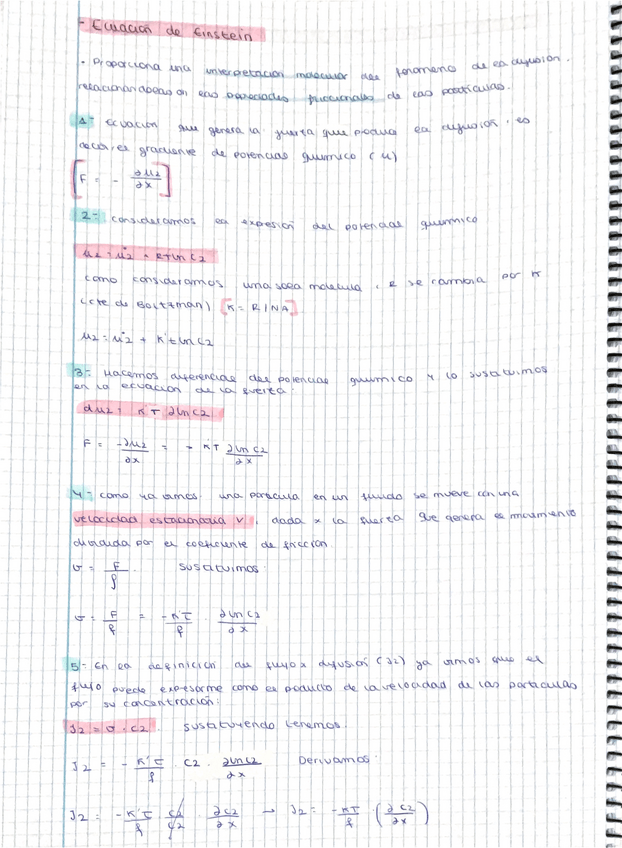 - Ecuación de Einstein
• Proporciona una interpretación molecular del fenómeno de la difusión,
relacionándolas con las propiedades friccionales de las partículas.
1- Ecuación que genera la fuerza que produce la difusión, es
decir, el gradiente de potencial químico (μ)
[F = - ∂μ2/∂x]
2- Consideramos la expresión del potencial químico
μ2 = μ°2 + RTlnC2
Como consideramos una sola molécula, R se cambia por K
(cte de Boltzman) [K = R/NA]
μ2 = μ°2 + K'tlnC2
3- Hacemos diferencial del potencial químico y lo sustituimos
en la ecuación de la fuerza:
dμ2 = K'T ∂lnC2
F = -∂μ2/∂x = - K'T ∂lnC2/∂x
4- Como ya vimos, una partícula en un fluido se mueve con una
velocidad estacionaria V, dada x la fuerza que genera el movimiento
dividida por el coeficiente de fricción
v = F/f. Sustituimos:
v = F/f = -K'T/f · ∂lnC2/∂x
5- En la definición de flujo x difusión (J2) ya vimos que el
flujo puede expresarme como el producto de la velocidad de las partículas
por su concentración:
J2 = v · C2. Sustituyendo tenemos:
J2 = - K'T/f · C2 · ∂lnC2/∂x Derivamos:
J2 = - K'T/f · C2/C2 · ∂C2/∂x → J2 = -KT/f · (∂C2/∂x)